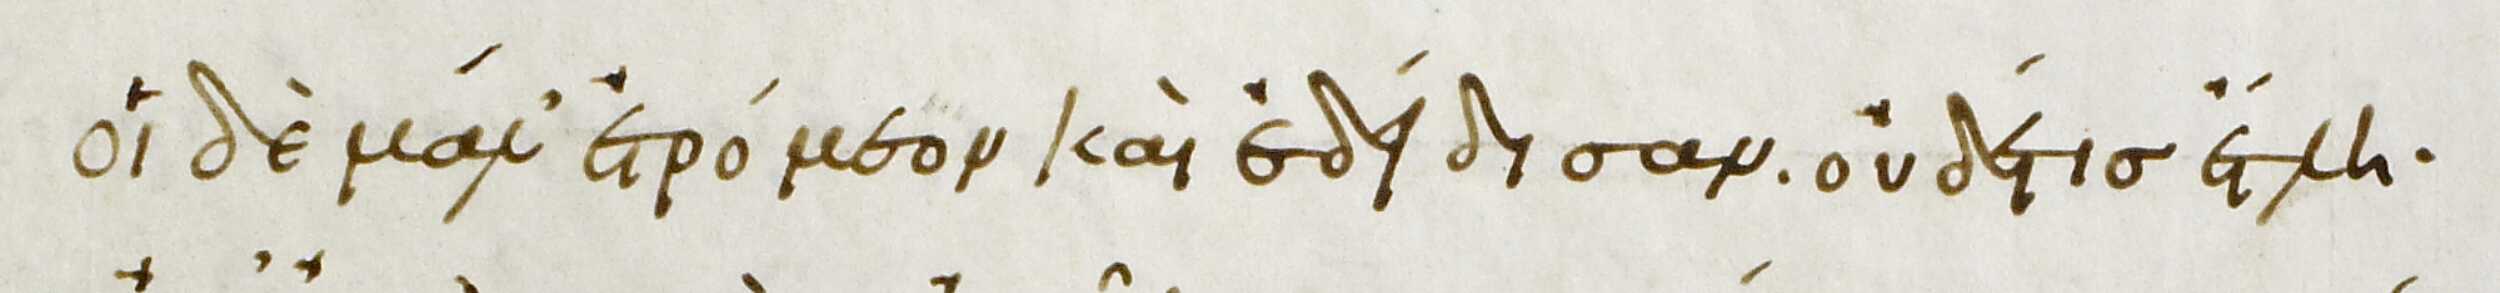 οἱ δὲ μάλ' ἐτρόμεον καὶ ἐδείδισαν. οὐδέτισ ἔτλη.